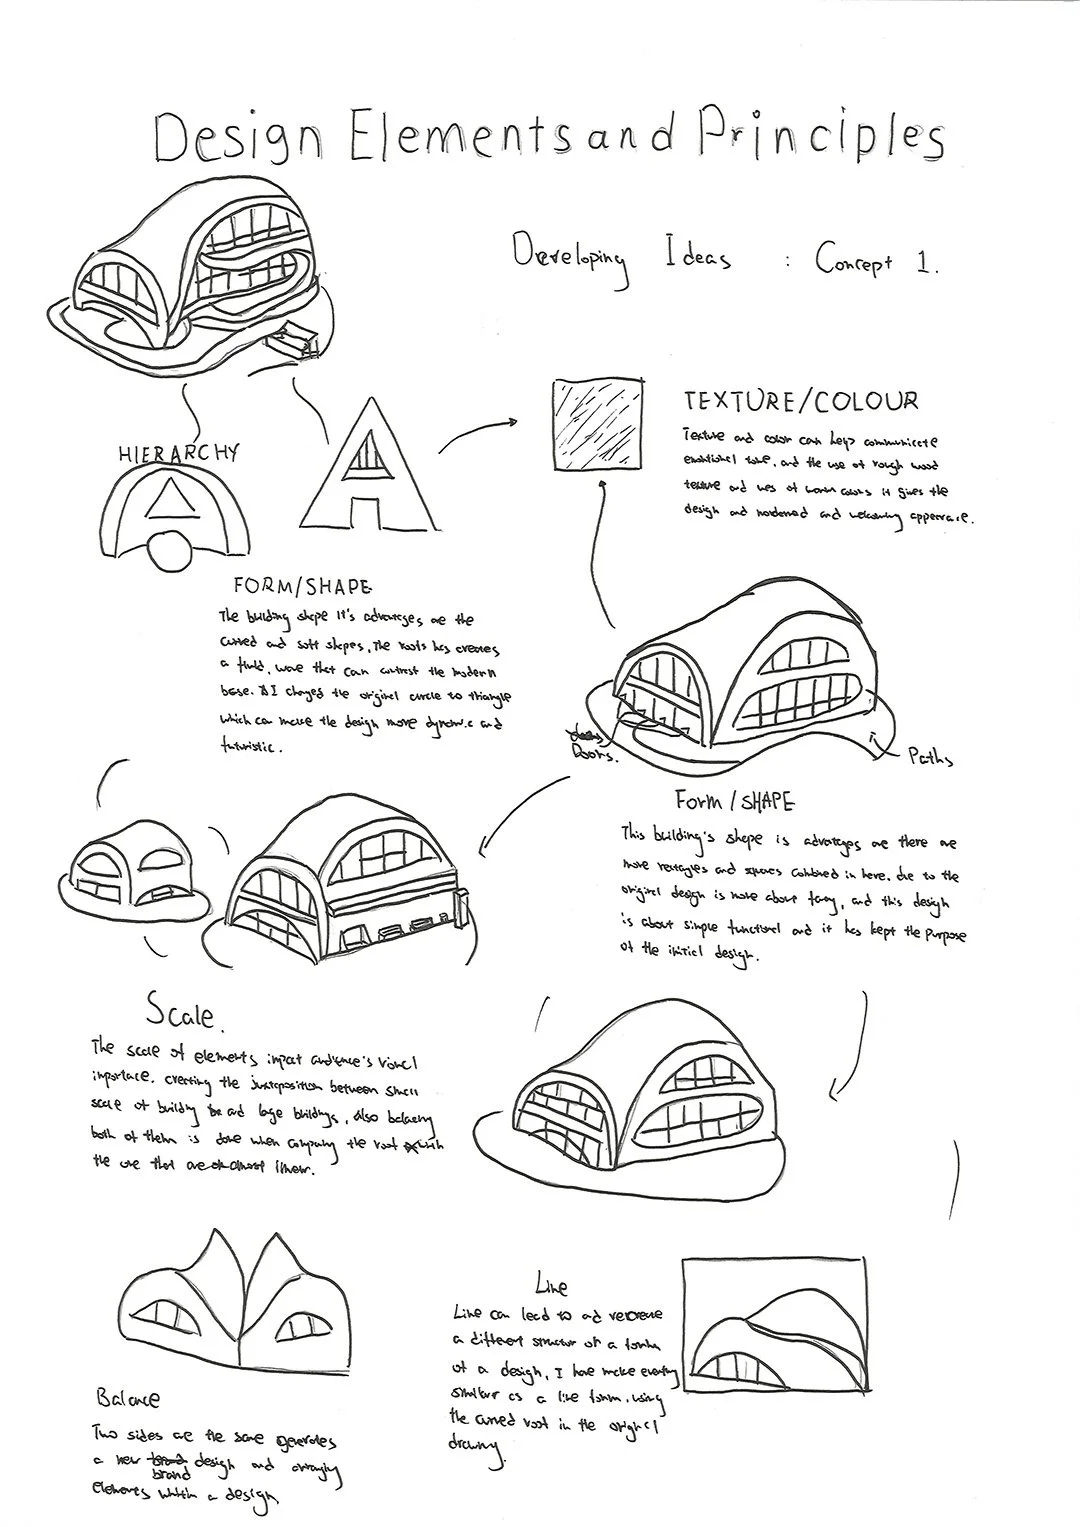 Design Elements and Principles
Developing Ideas : Concept 1.
HIERARCHY
TEXTURE/COLOUR
Texture and color can help communicate
emotional tone, and the use of rough wood
texture and uses of warm colors it gives the
design and and welcoming appearace.
FORM/SHAPE
The building shape it's advantages are the
curved and soft shapes, The roofs has creates
a fluid, wave that can contrast the modern
base. I changed the original circle to triangle
which can make the design more dynamic and
futuristic.
Doors.
Paths
Form/SHAPE
This building's shape is advantages are there are
more rectagles and squares combined in here. due to the
original design is more about fancy, and this design
is about simple functional and it has kept the purpose
of the initial design.
Scale.
The scale of elements impact audience's visual
importace. creating the juxtaposition between small
scale of building and large buildings, also balancing
both of them is done when comparing the roof with
the one that are almost linear.
Line
Line can lead to and
a different structur of a
of a design, I have make
similar as a line form, using
the curved roof in the original
drawing.
Balance
Two sides are the same generates
a new brand design and arranging
elements within a design.